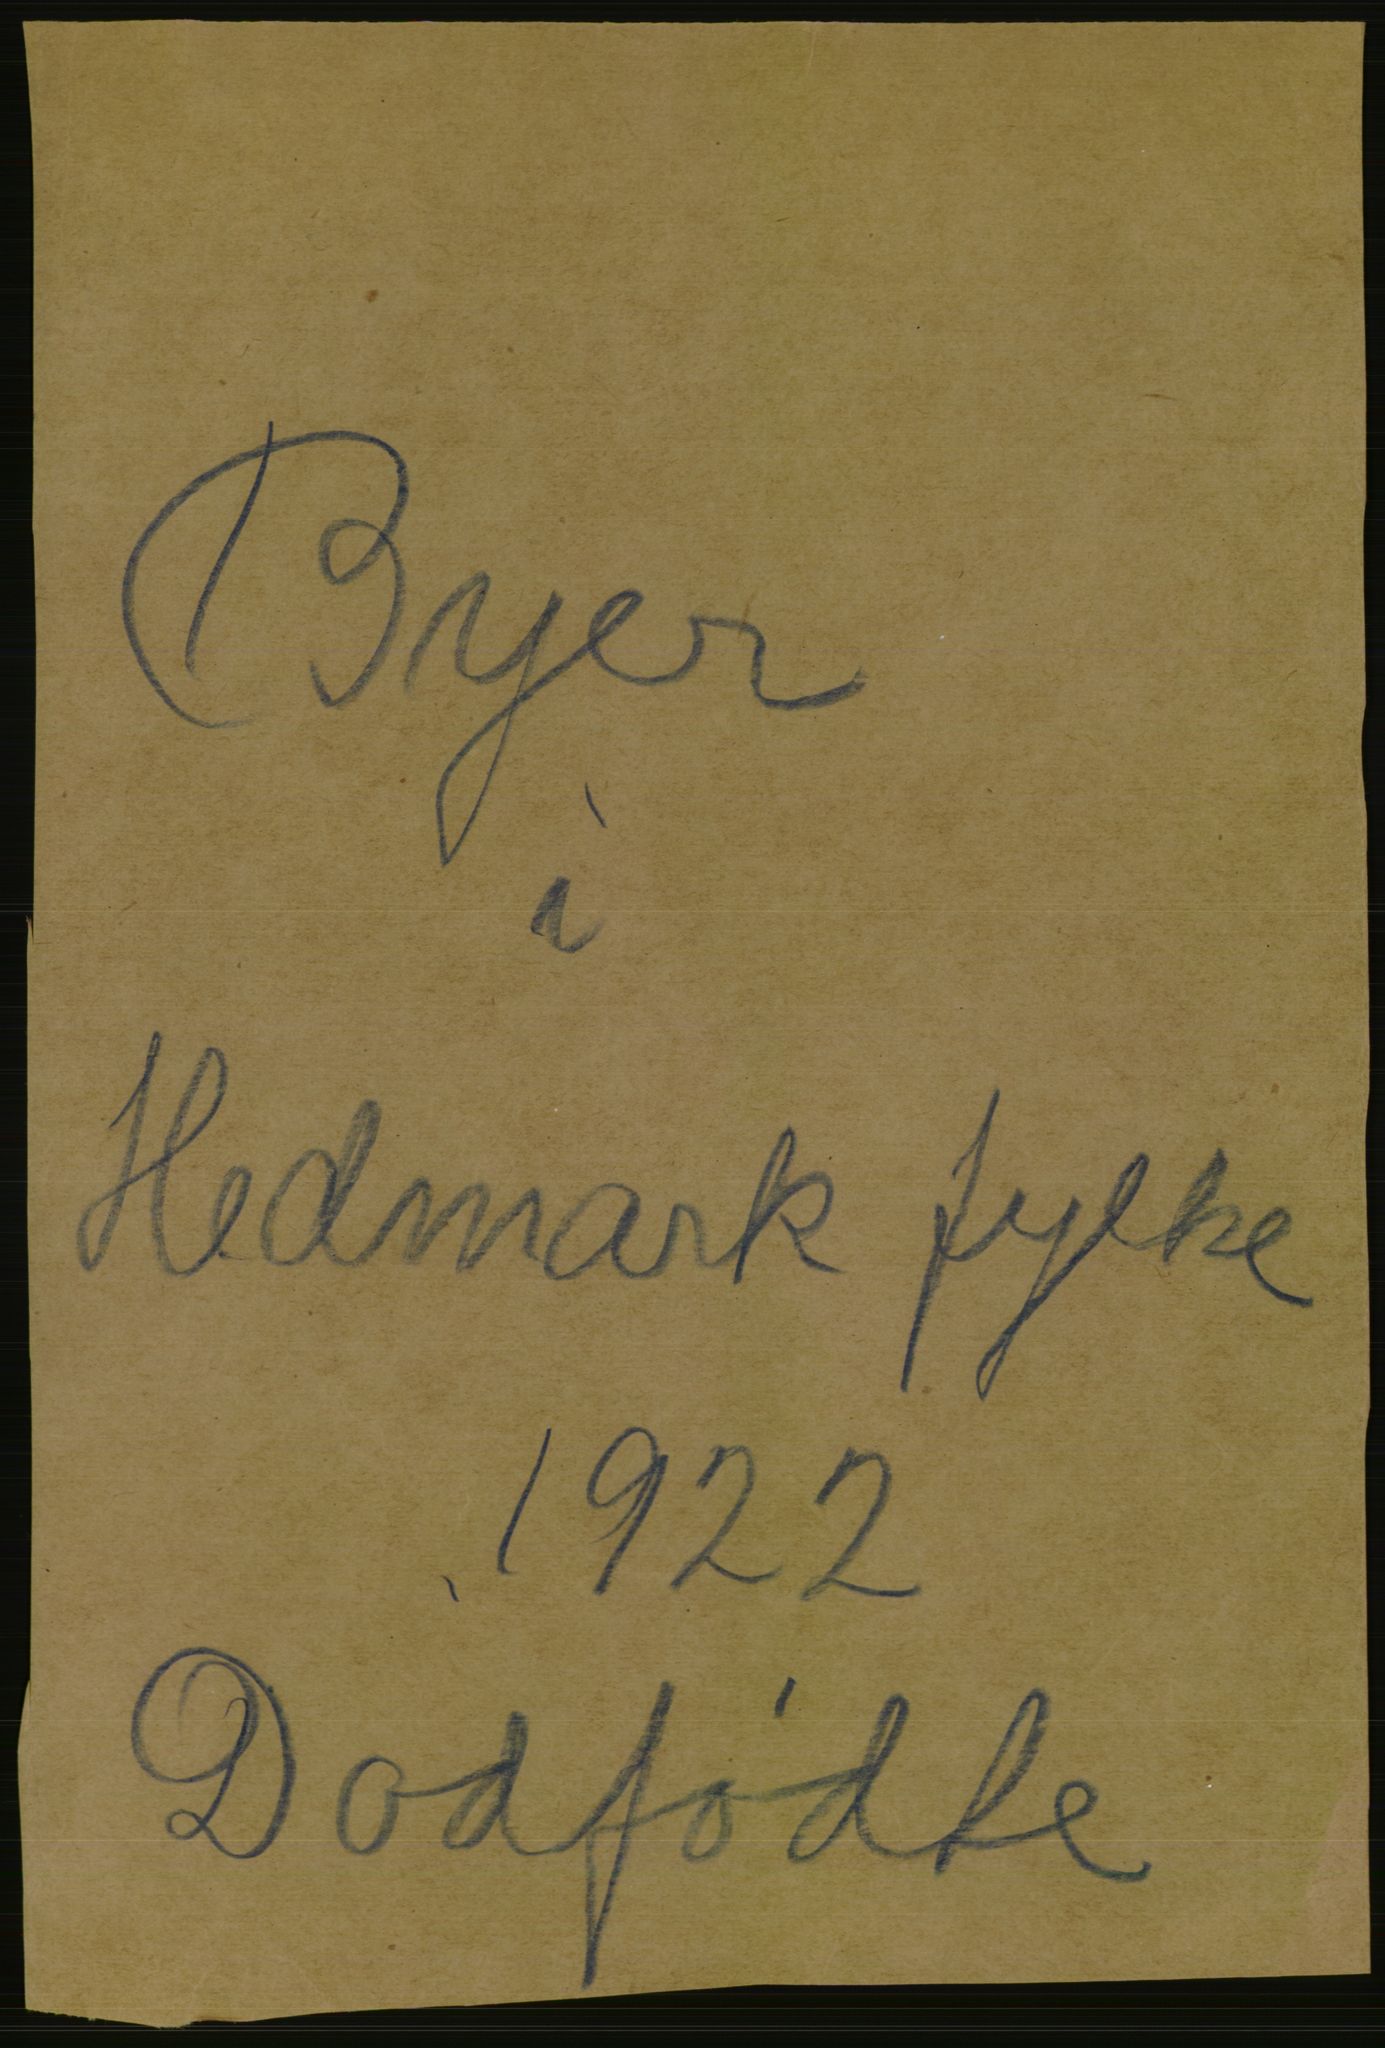 Byer
i
Hedmark fylke
1922
Dodfødte